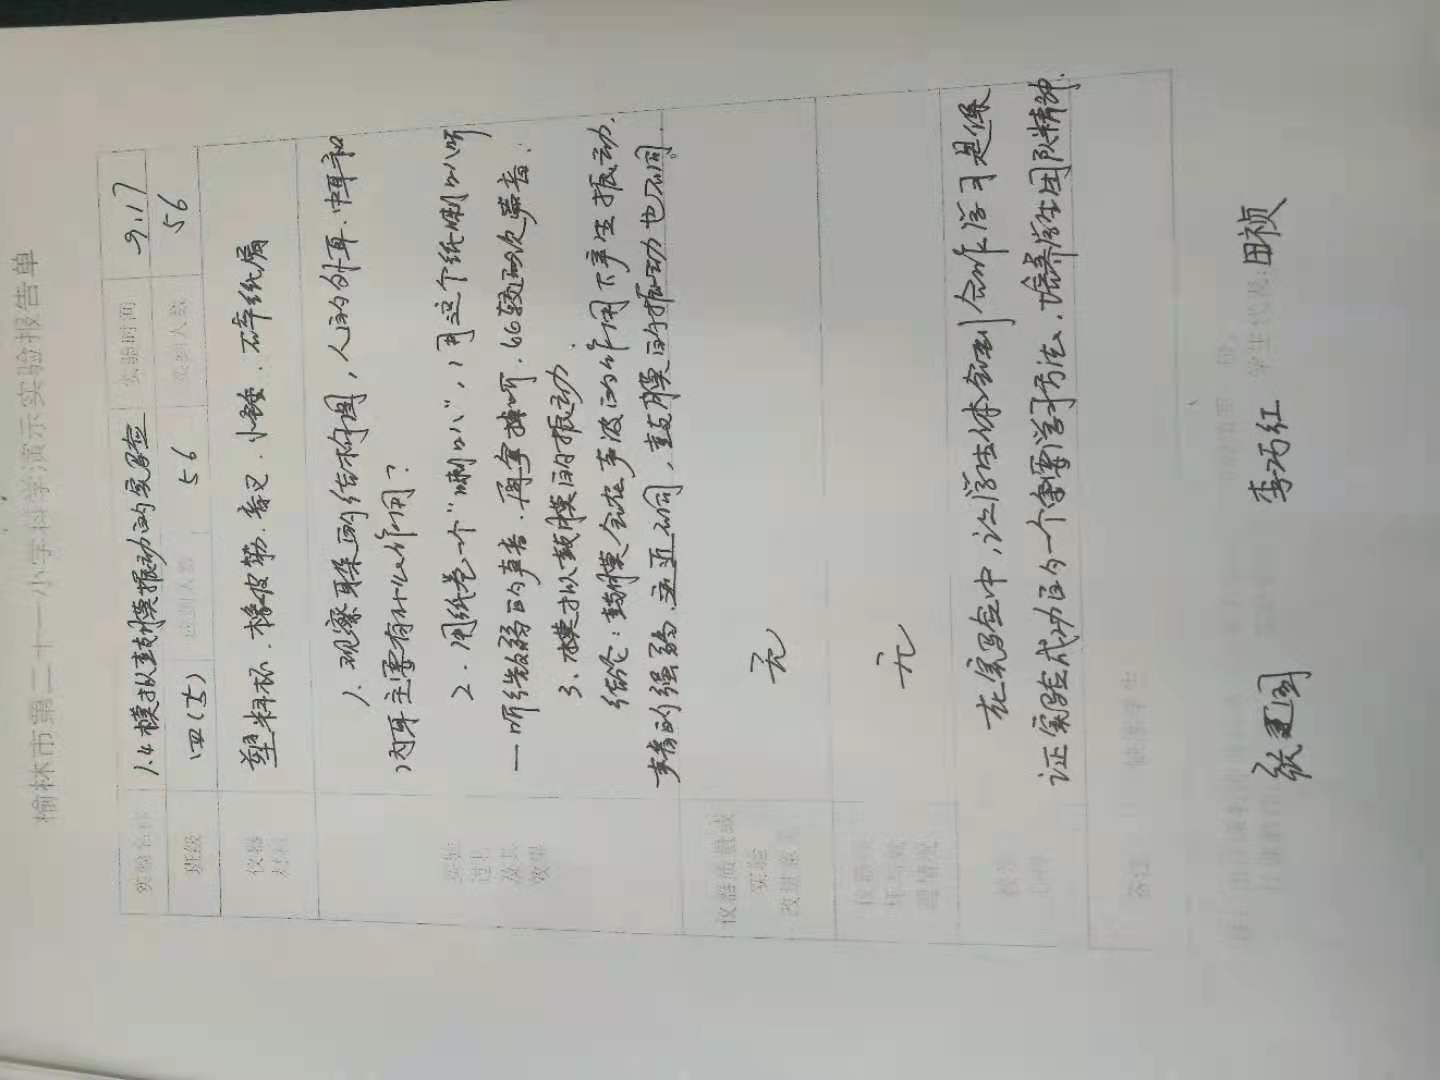 榆林市第二十一小学科学演示实验报告单
实验名称 1.4模拟鼓膜振动的实验 实验时间 9.17
班级 四(5) 应到人数 56 实到人数 56
仪器材料 塑料杯、橡皮筋、音叉、小锤、碎纸屑
实验过程及其效果
1、观察耳朵的结构图，人的外耳、中耳和
内耳主要有什么作用？
2、用纸卷一个“喇叭”，用这个纸喇叭听
一听微弱的声音，再拿掉听，比较两次声音.
3、模拟鼓膜的振动.
结论：鼓膜会在声波的作用下产生振动.
声音的强弱、远近不同，鼓膜的振动也不同。
仪器质量或实验改进意见 无
仪器损坏与处理情况 无
在实验中，让学生体会到合作学习是保
证实验成功的一个重要学习方法，培养学生团队精神.
张建国 李巧红 学生代表: 田祯